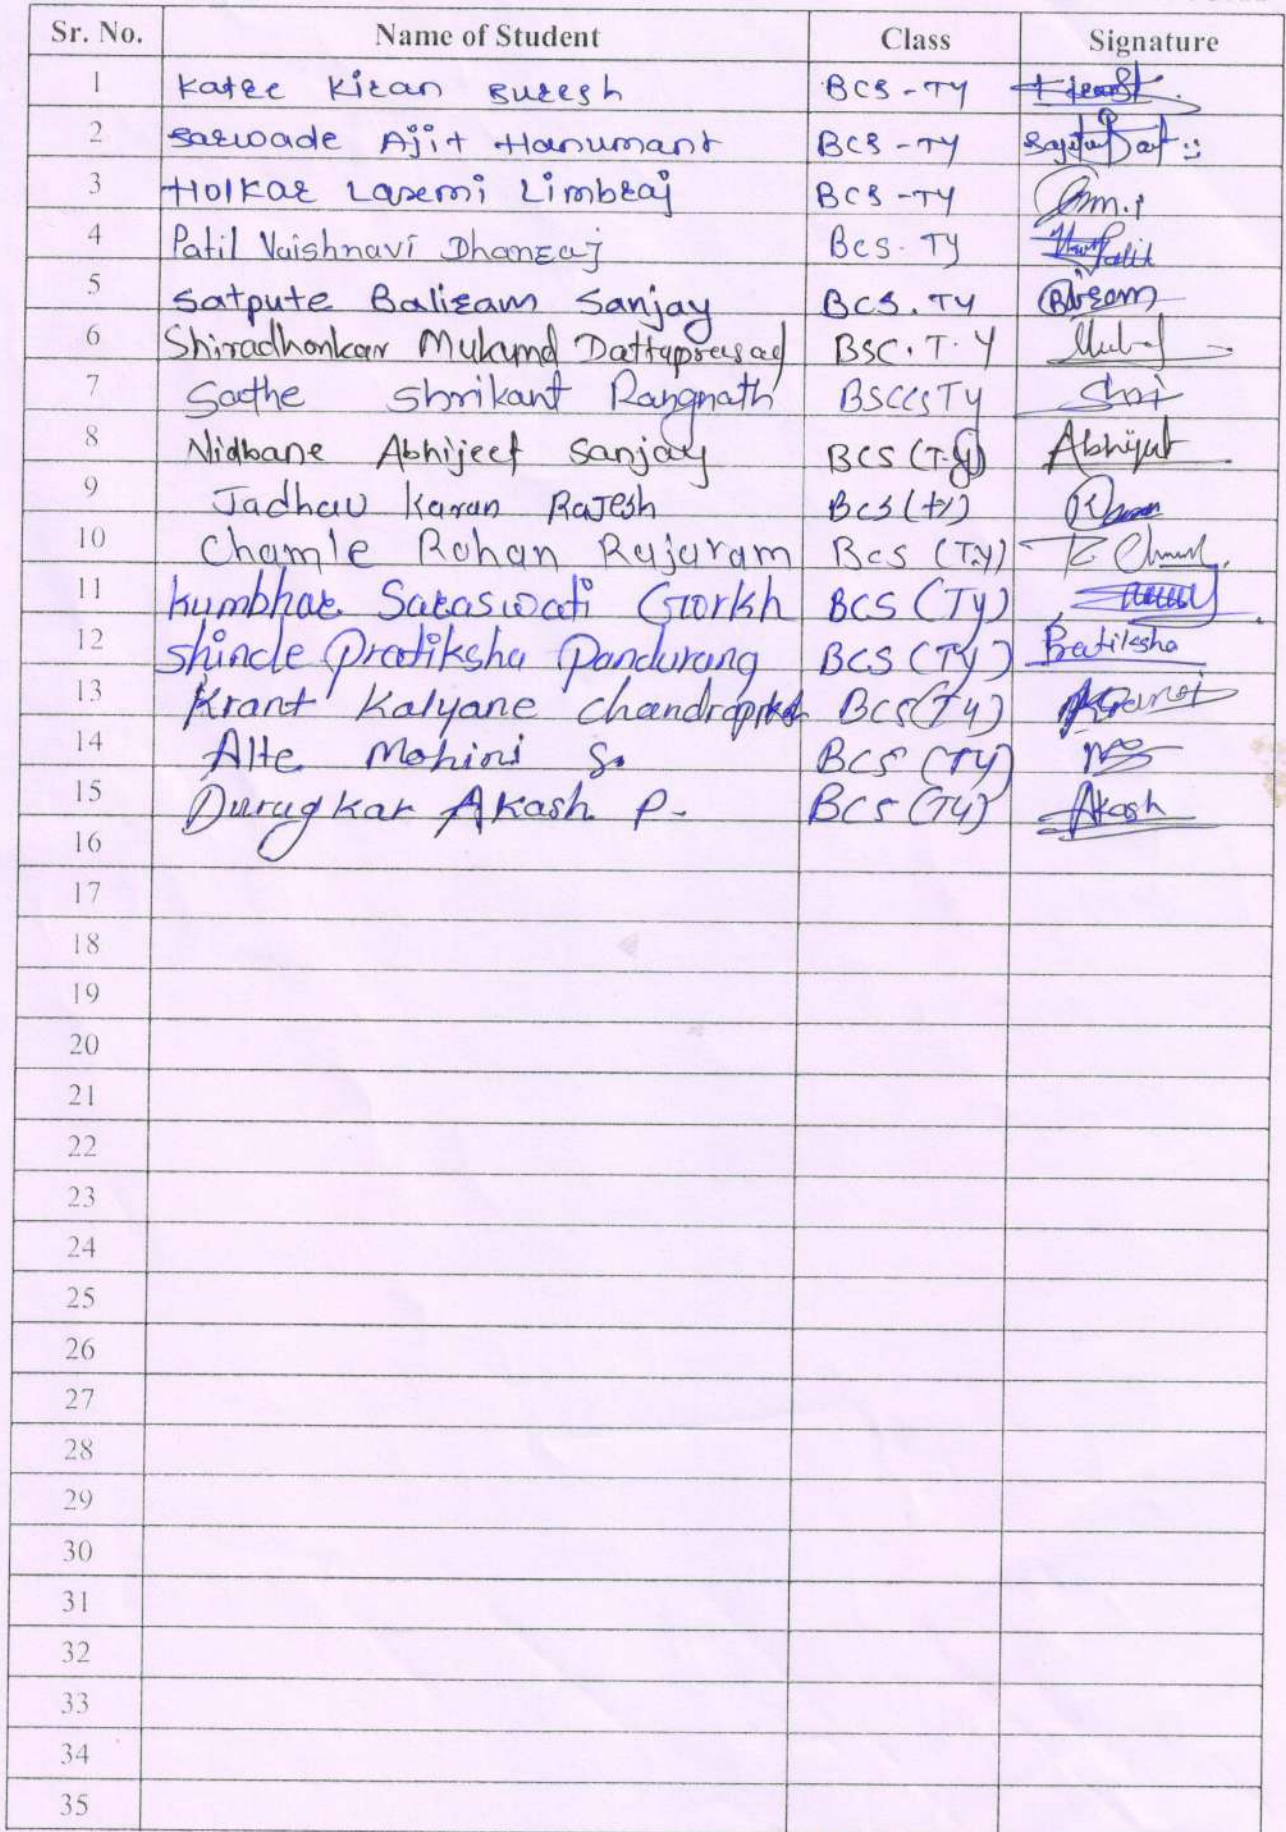 Sr. No. Name of Student Class Signature
1 Katre Kiran Suresh BCS-TY
2 Sarwade Ajit Hanumant BCS-TY
3 Holkar Laxmi Limbraj BCS-TY
4 Patil Vaishnavi Dhanraj BCS. TY Patil
5 Satpute Baliram Sanjay BCS. TY
6 Shiradhonkar Mukund Dattaprasad BSC. T. Y
7 Sathe Shrikant Rangnath BSCCSTY Shri
8 Nidbane Abhijeet Sanjay BCS (T.y) Abhijeet
9 Jadhav Karan RaJesh BCS (ty)
10 Chamle Rohan Rajaram BCS (T.y)
11 Kumbhar Saraswati Gorkh BCS (Ty)
12 Shinde Pratiksha Pandurang BCS (Ty) Pratiksha
13 Krant Kalyane Chandra BCS (Ty)
14 Alte Mohini S. BCS (TY)
15 Durugkar Akash P. BCS (TY) Akash
16
17
18
19
20
21
22
23
24
25
26
27
28
29
30
31
32
33
34
35